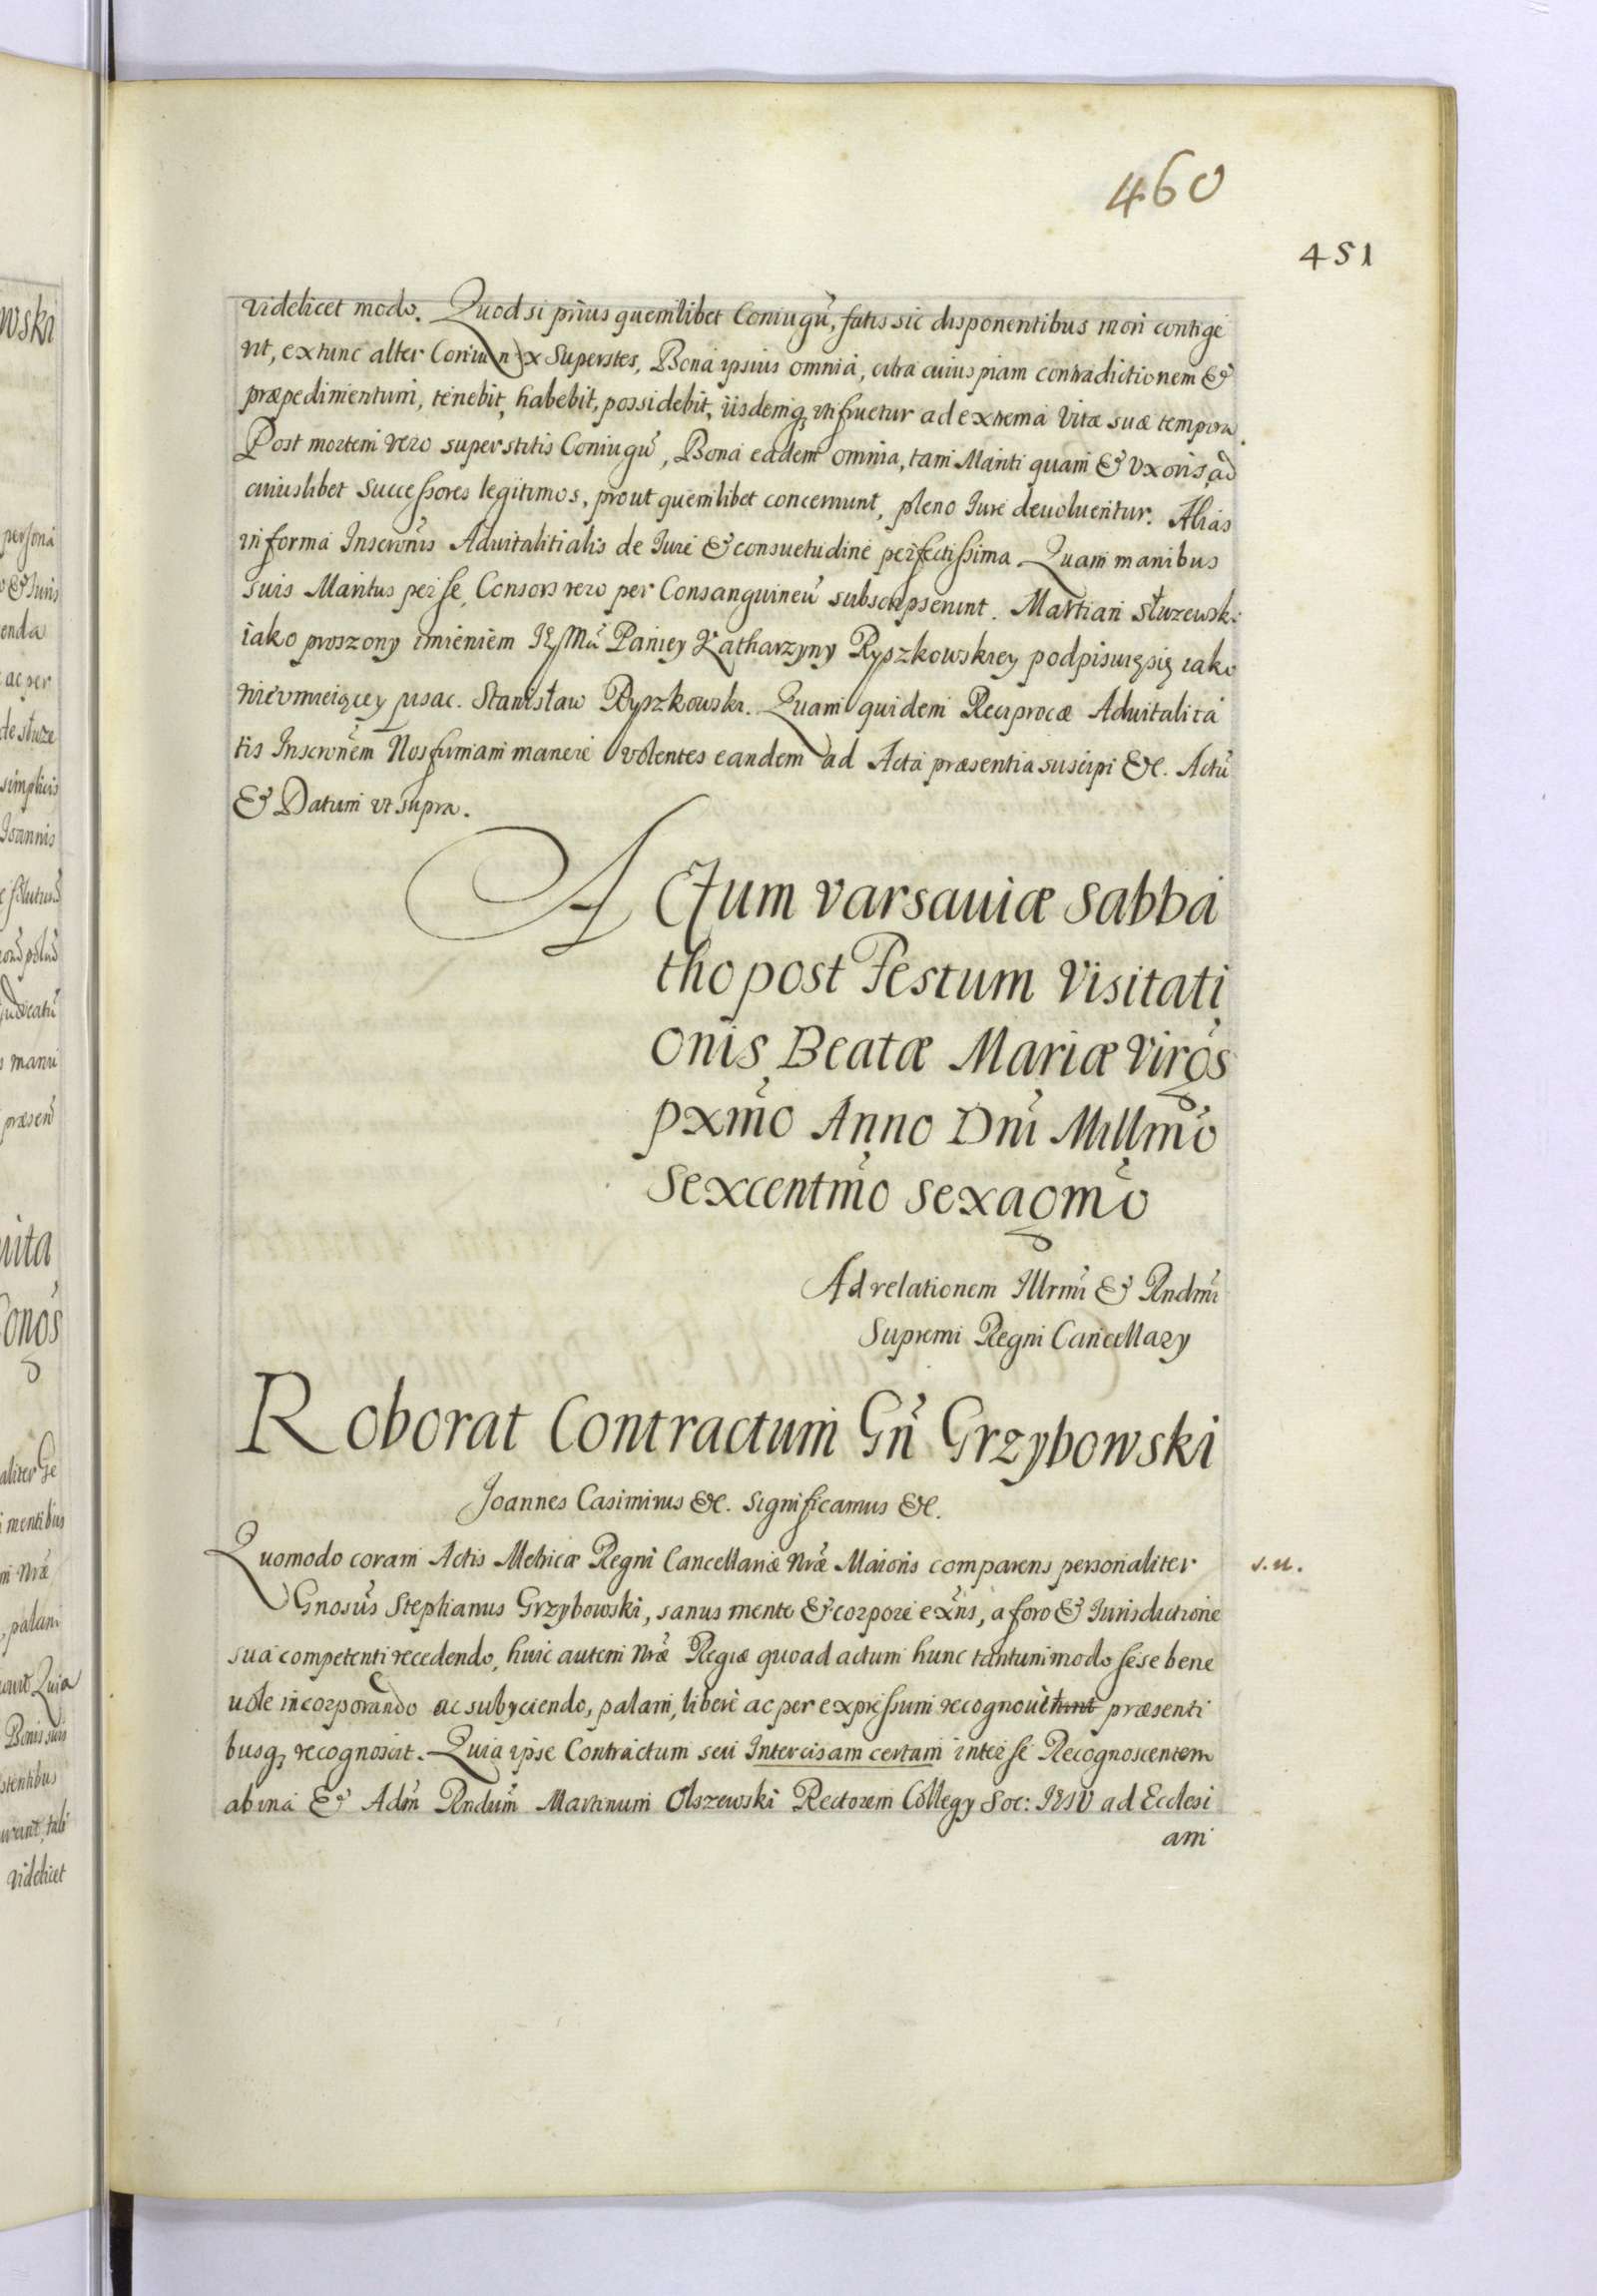 460
451
videlicet modo. Quod si prius quemlibet Coniugũ, fatis sic disponentibus mori contige
rit, extunc alter Coniunx Superstes, Bona ipsius omnia, citra cuiuspiam contradictionem &
præpedimentum, tenebit, habebit, possidebit, iisdemq, utifruetur ad extrema Vitæ suæ tempora.
Post mortem vero superstitis Coniugũ, Bona eadem omnia, tam Mariti quam & Vxoris, ad
cuiuslibet Successores legitimos, prout quemlibet concernunt, pleno Iure devoluentur. Alias
in forma Inscrõnis Aduitalitialis de Iure & consuetudine perfectissima. Quam manibus
suis Maritus per se, Consors vero per Consanguineũ subscripserunt. Martian Słuzewski
iako proszony imieniem Jeỹ Mći Paniey Katharzyny Ryszkowskiey podpisuię się iako
nievmieiącey pisac. Stanisław Ryszkowski. Quam quidem Reciprocæ Aduitalita
tis Inscrõnem Nos firmam manere volentes eandem ad Acta præsentia suscipi &c. Actũ
& Datum vt supra.
ACtum Varsauiæ Sabba
tho post Festum Visitati
onis Beatæ Mariæ Virgĩs
pxm̃o Anno Dnĩ Millm̃o
Sexcentm̃o Sexagm̃o
Ad relationem Illrmĩ & Rndmĩ
Supremi Regni Cancellary
Roborat Contractum Gñ Grzybowski
Joannes Casimirus &c. Significamus &c.
Quomodo coram Actis Metricæ Regni Cancellariæ Nræ̃ Maioris comparens personaliter
s.u.
Gnosũs Stephanus Grzybowski, sanus mente & corpore exñs, a foro & Iurisdictione
sua competenti recedendo, huic autem Nræ̃ Regiæ quoad actum hunc tantummodo sese bene
uole incorporando ac subyciendo, palam, libere ac per expressum recognouit præsenti
busq, recognoscit. Quia ipse Contractum seu Intercisam certam inter se Recognoscentem
ab vna & Adm̃ Rndũm Martinum Olszewski Rectorem Collegy Soc: IESV ad Ecclesi
am